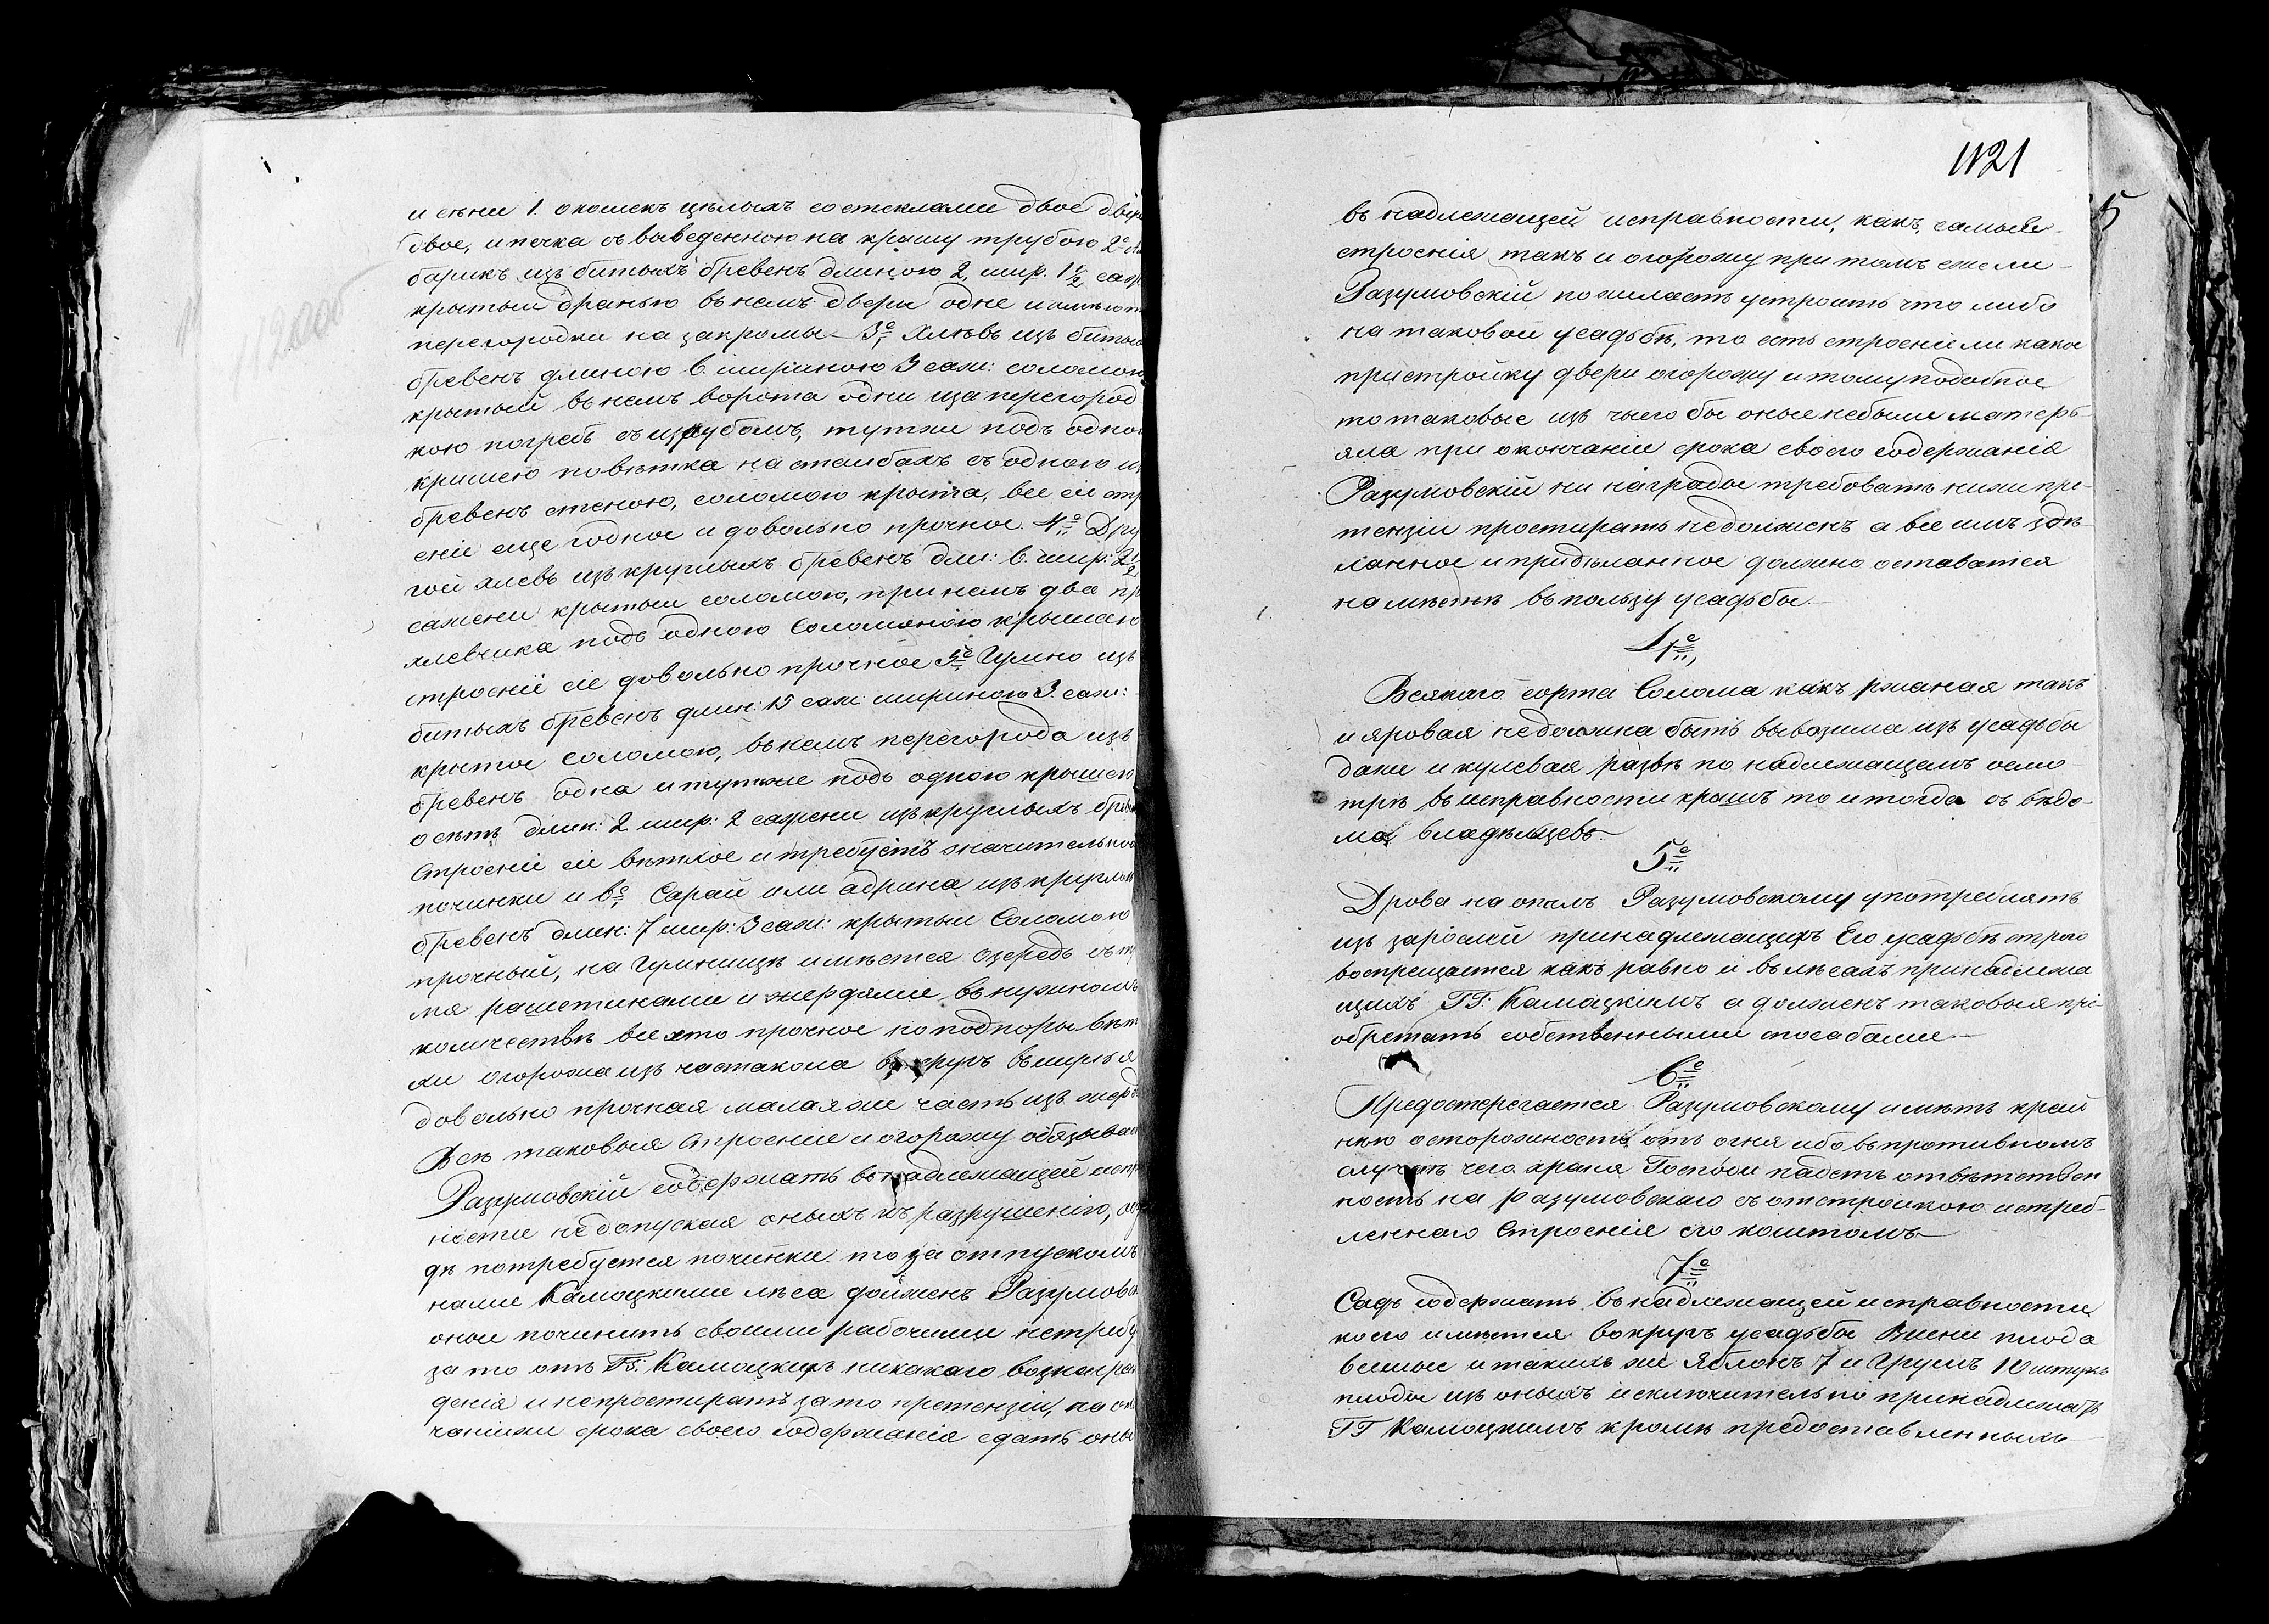 и сѣни 1. окошекъ цѣлыхъ состеклами двое двер
двое, и печка съ выведенною на крышу трубою 2е Ам
барикъ изъ битыхъ бревенъ длиною 2, шир. 1½ саж
крытый дранью въ немъ двери одне и имѣют
перегородки на закромы 3е Хлѣвъ изъ битых
бревенъ длиною 6. шириною 3 саж: соломою
крытый въ немъ ворота одни иза перегород
кою погребъ съ изрубомъ, тутже подъ одною
кришею повѣтка на столбахъ съ одною из
бревенъ стеною, соломою крыта, все сіе стр
еніе еще годное и довольно прочное. 4е Дру
гой хлевъ изъ круглыхъ бревенъ дли: 6. шир: 2½
сажени крытый соломою, при немъ два пр
хлевчика подъ одною Соломяною крышаю
строеніе сіе довольно прочное 5е Гумно изъ
битыхъ бревенъ длин: 15 саж: шириною 3. саж:
крытое соломою, въ немъ перегорода изъ
бревенъ одна и тутже подъ одною крышею
осѣть длин: 2 шир: 2 сажени изъ круглыхъ брев
Строеніе сіе вѣтхое и требуетъ значительной
починки и 6е Сарай или адрина изъ круглых
бревенъ длин: 7 шир: 3 саж: крытый Соломою
прочный, на Гумнищѣ имѣется Озередъ съ тр
мя рашетинами и жердями въ нужномъ
количествѣ все это прочное но подпоры вѣт
хи огорожа изъ частакола вокругъ
довольно прочная малая же часть изъ жерд
Всѣ таковыя Строеніе и огорожу обязывает
Разумовскій содержать въ надлежащей испр
ности недопуская оныхъ къ разрушенію, а
дѣ потребуется починка то за отпускомъ
нами Камоцкими лѣса долженъ Разумовск
оные починить своими рабочими нетребу
за то отъ ГГ: Камоцкихъ никакаго вознагра
денія и непростирать за то претензіи, по око
чаніиже срока своего содержанія сдать оны
1121
5
въ надлежащей исправности, какъ, самыя
строенія такъ и огорожу при томъ ежели
Разумовскій пожилаетъ устроить что либо
на таковой усадьбѣ, то есть строеніе ли какое
пристройку двери огорожу и томуподобное
то таковые изъ чьего бы оные небыли матерь
яла при окончаніи срока своего содержанія
Разумовскій ни награды требовать ниже пре
тензіи простирать недолженъ а все имъ здѣ
ланное и придѣланное должно оставатся
на мѣстѣ въ пользу усадьбы.
4е
Всякаго сорта Солома какъ ржаная такъ
и яровая недолжна быть вывозима изъ усадьбы
даже и кулевая развѣ по надлежащемъ осмо
трѣ въ исправности крышъ то и тогда съ вѣдо-
ма владѣльцевъ.
5е
Дрова на опалъ Разумовскому употреблять
изъ заріослей принадлежащихъ Его усадьбѣ строго
воспрещается какъ равно и въ лѣсахъ принадлежа
щихъ ГГ: Камоцкимъ а долженъ таковыя прі
обретать собственными способами
6е
Предостерегается Разумовскому имѣть край
нюю осторожность отъ огня ибо въ противномъ
случаѣ чего храни Господи падетъ отвѣтствен
ность на Разумовскаго съ отстройкою истреб-
леннаго Строенія его коштомъ
7е
Садъ содержать въ надлежащей исправности
коего имѣется вокругъ усадьбы Вишни плода
вешные и такихъ же Яблонь 7 и Грушъ 10 штукъ
плоды изъ оныхъ исключительно принадлежатъ
ГГ Камоцкимъ кромѣ предоставленныхъ